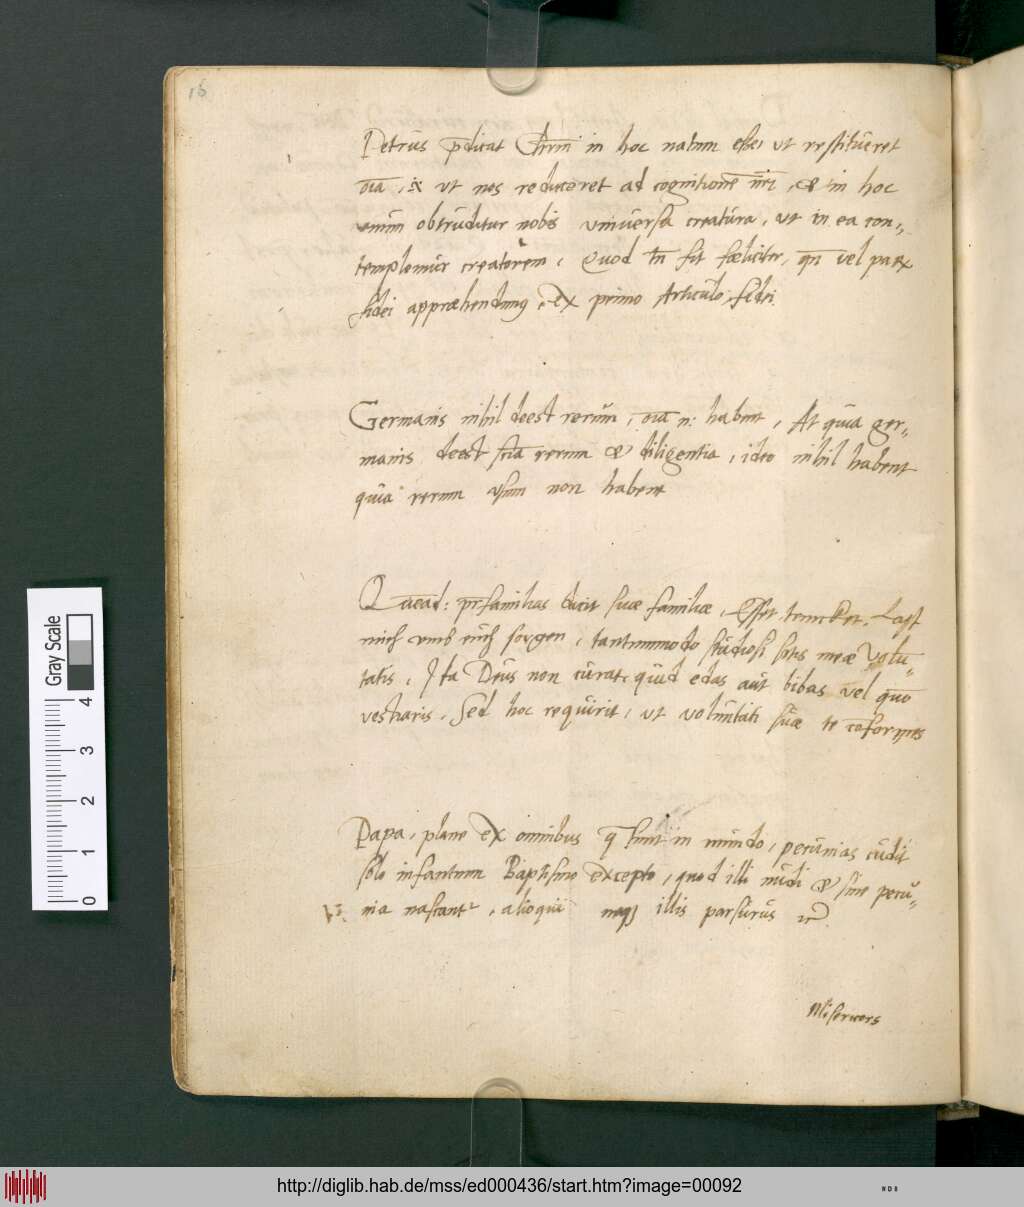 16
Petrus p̄dicat Chrm̄ in hoc natum esse, ut restitueret
oīa, ut nos reduceret ad cognitionē nr̄i, & in hoc
enim obtruditur nobis universa creatura, ut in ea con„
templemur creatorem, Quod tn̄ fit fœliciter, qn̄ vel parx
fidei appræhendimus, ex primo Articulo fidei.
Germanis nihil deest rerum, oīa n: habent, At quia ger„
manis deest rerum & diligentia, ideo nihil habent
quia rerum usum non habent
Quead: pr̄familias dicit suæ familiæ, Esset trincket, Last
mich umb euch sorgen, tantummodo studiosi sitis meæ Volu„
tatis, Ita Deus non curat, quid edas aut bibas vel quo
vestiaris, Sed hoc requirit, ut voluntati suæ te cōformes
Papa, plane ex omnibus q̄ sunt in mundo, pecunias cudit
solo infantum Baptismo excepto, quod illi nudi & sine pecu„
nia nascantr, alioqui neqȝ illis parsurus